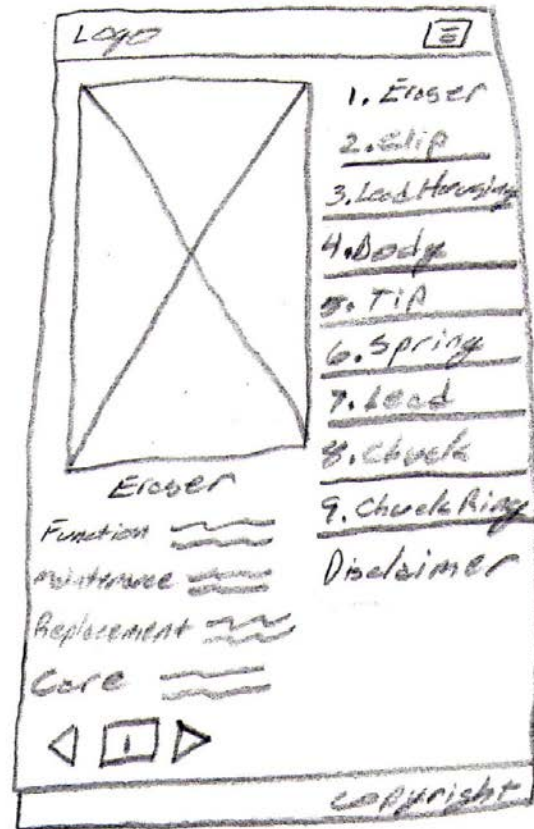 Logo
1. Eraser
2. Clip
3. Lead Housing
4. Body
5. Tip
6. Spring
7. Lead
8. Chuck
9. Chuck Ring
Disclaimer
Eraser
Function
Maintenance
Replacement
Care
1
copyright